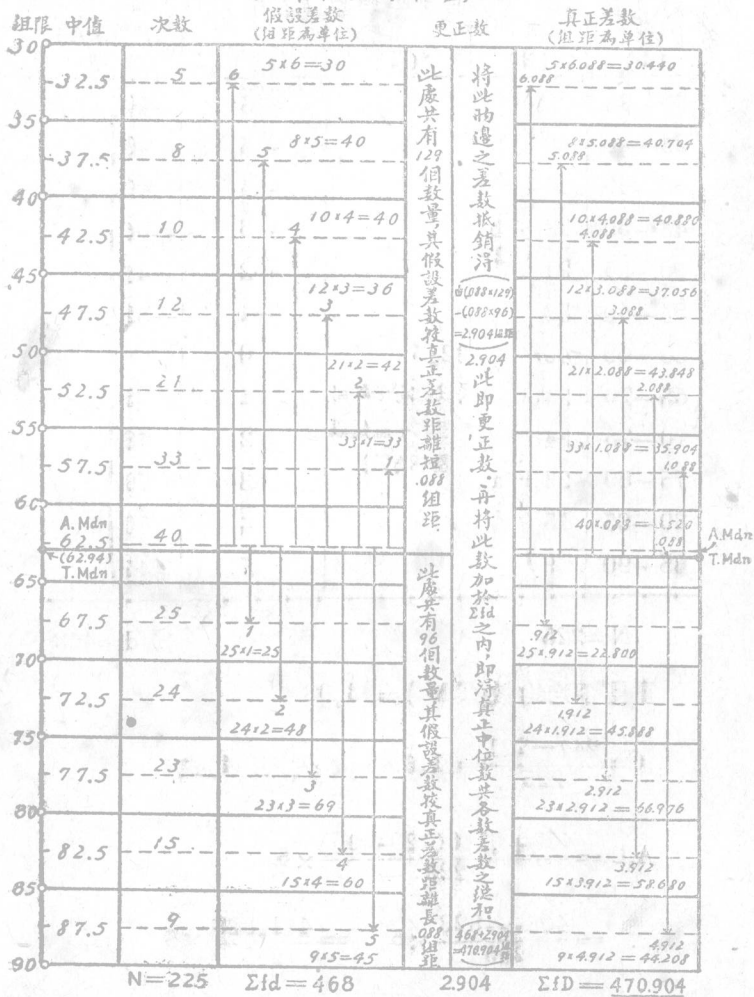 組限 中值 次数 假設差數 更正數 真正差數
(組距為單位) (組距為單位)
30
32.5 5 6 5×6=30 6.088 5×6.088=30.440
35
37.5 8 5 8×5=40 5.088 8×5.088=40.704
40
42.5 10 4 10×4=40 4.088 10×4.088=40.880
45
47.5 12 3 12×3=36 3.088 12×3.088=37.056
50
52.5 21 2 21×2=42 2.088 21×2.088=43.848
55
57.5 33 1 33×1=33 1.088 33×1.088=35.904
60
A.Mdn
62.5 40 40×.088=3.520 .088 A.Mdn
(62.94)
T.Mdn T.Mdn
65
67.5 25 1 25×1=25 .912 25×.912=22.800
70
72.5 24 2 24×2=48 1.912 24×1.912=45.888
75
77.5 23 3 23×3=69 2.912 23×2.912=66.976
80
82.5 15 4 15×4=60 3.912 15×3.912=58.680
85
87.5 9 5 9×5=45 4.912 9×4.912=44.208
90
此處共有129個数量,其假設差數較真正差數距離短.088組距.
此處共有96個數量其假設差數較真正差數距離長.088組距
將此兩邊之差數抵銷得
(.088×129)
-(.088×96)
=2.904組距
2.904
此即更正數.再將此數加於Σfd之內,即得真正中位數與各數差數之總和.
468+2.904
=470.904
N=225 Σfd=468 2.904 ΣfD=470.904